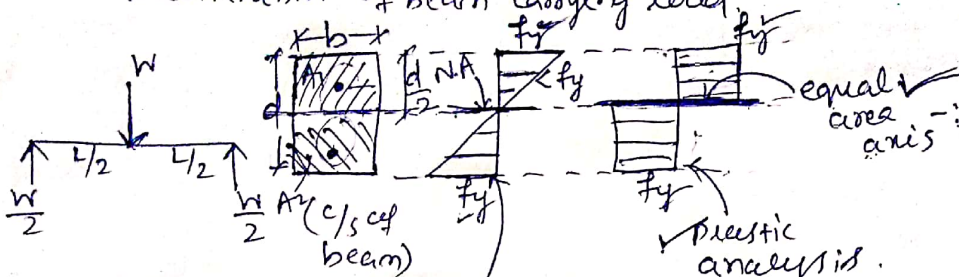 of beam carrying load.
W
L/2 L/2
W/2 W/2
b
A1
A2
d
d/2
N.A
(c/s of beam)
fy
<fy
fy
fy
fy
equal area axis
plastic analysis.